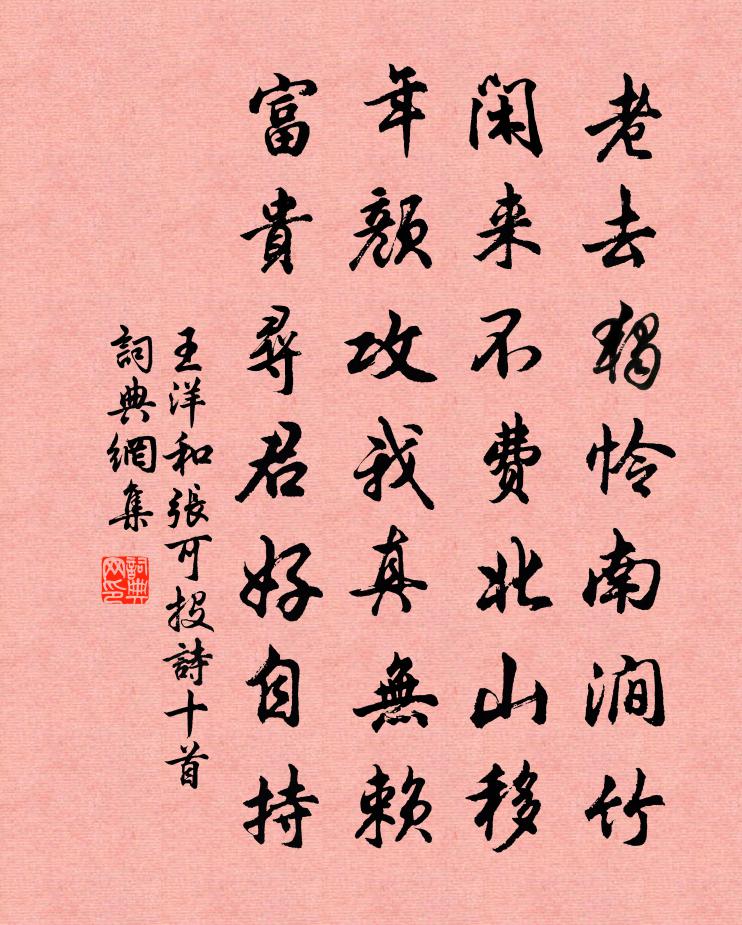 老去独怜南涧竹
闲来不费北山移
年颜攻我真無赖
富貴尋君好自持
王洋和張可投詩十首
詞典網集
詞典
网印